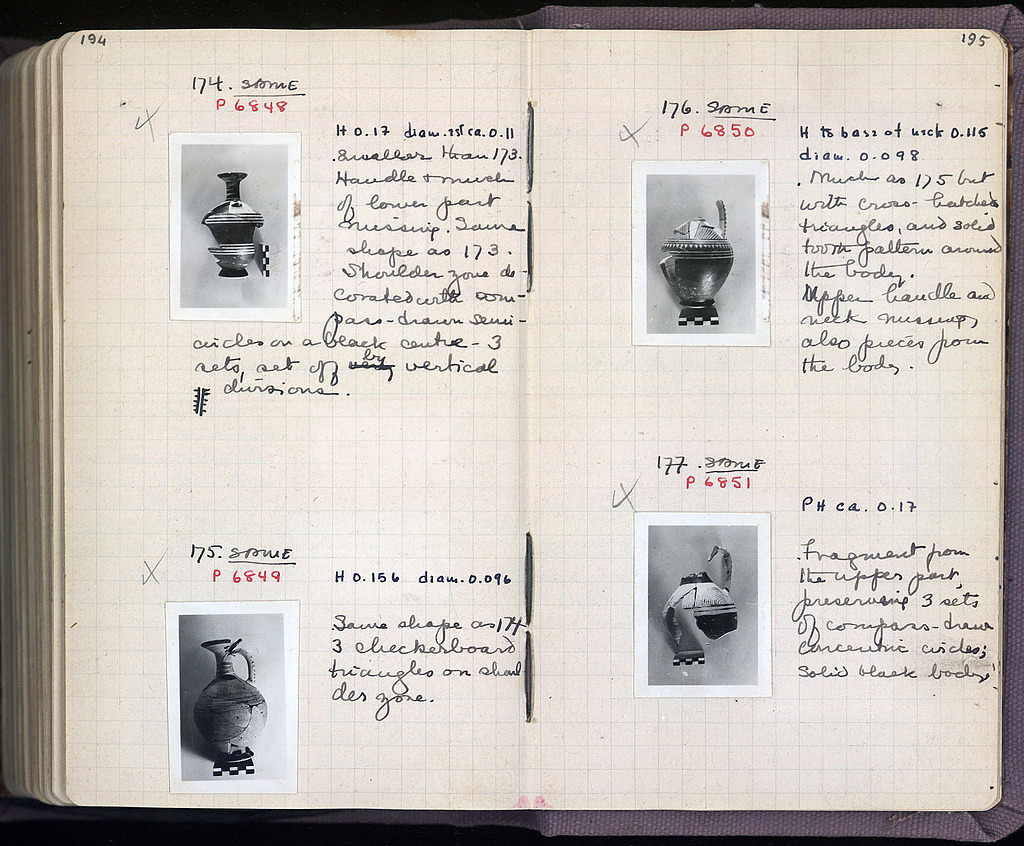 194
174. SAME
P 6848
H 0.17 diam. est ca. 0.11
.Smaller than 173.
Handle + much
of lower part
missing. Same
shape as 173.
Shoulder zone de-
corated with com-
pass-drawn semi-
circles on a black centre - 3
sets, set off by vertical
divisions.
175. SAME
P 6849
H 0.156 diam. 0.096
Same shape as 174
3 checkerboard
triangles on shoul
der zone.
195
176. SAME
P 6850
H to base of neck 0.115
diam. 0.098
. Much as 175 but
with cross-hatched
triangles, and solid
tooth pattern around
the body.
Upper handle and
neck missing,
also pieces from
the body.
177. SAME
P 6851
PH ca. 0.17
.Fragment from
the upper part,
preserving 3 sets
of compass-drawn
concentric circles;
solid black body.